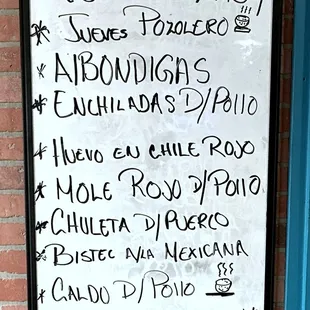 * Jueves Pozolero
* Albondigas
* Enchiladas D/Pollo
* Huevo en Chile Rojo
* Mole Rojo D/Pollo
* Chuleta D/Puerco
* Bistec A/la Mexicana
* Caldo D/Pollo